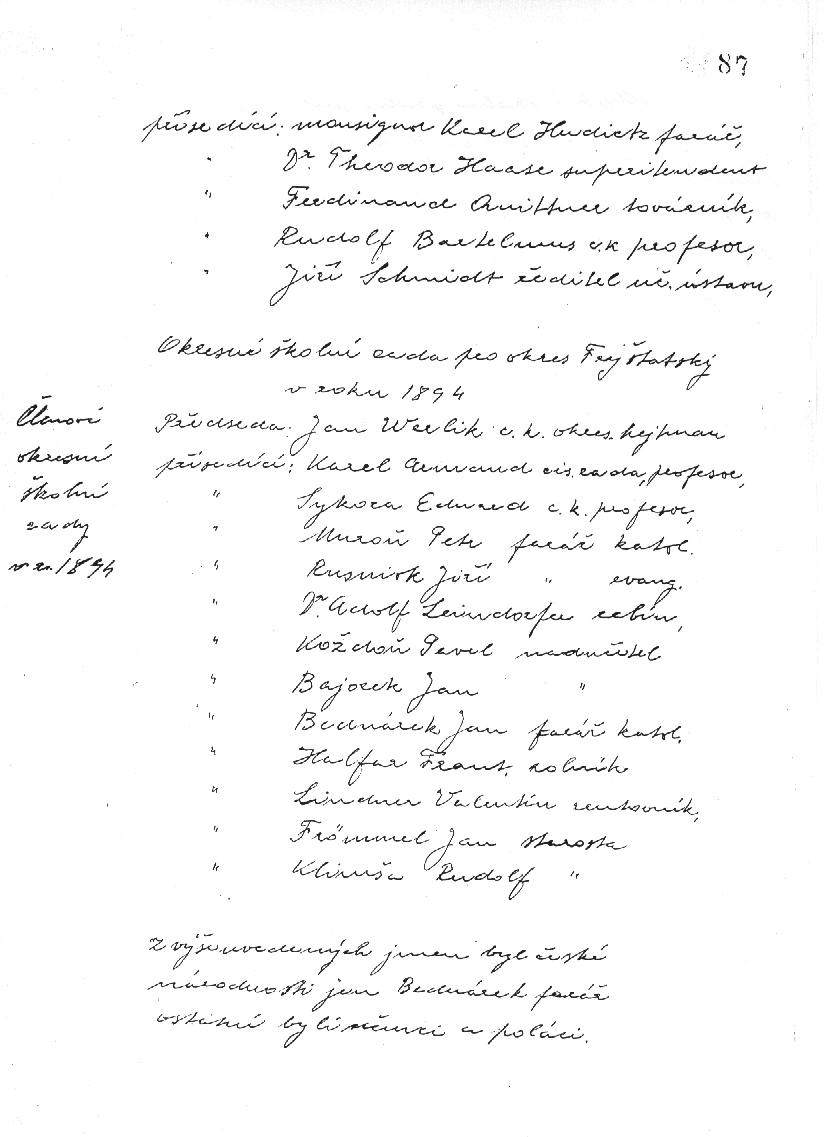 87
přísedící: monsignor Karel Hudietz farář,
" Dr. Theodor Haase superitendent
" Ferdinand Quittner továrník,
" Rudolf Bartelmus c.k. profesor,
" Jiří Schmidt ředitel uč. ústavu,
Okresní školní rada pro okres Frýštatský
v roku 1894
Členové
okresní
školní
rady
v r. 1894
Předseda: Jan Werlik c.k. okres. hejtman
přísedící: Karel Armand cis. rada, profesor,
" Sykora Eduard c.k. profesor,
" Muroň Petr farář katol.
" Rusniok Jiří " evang.
" Dr. Adolf Leimdorfer rebín,
" Koždoň Pavel nadučitel
" Bajorek Jan "
" Bednárek Jan farář katol.
" Halfar Frant. rolník
" Lindner Valentin rentovník,
" Frömmel Jan starosta
" Klimša Rudolf "
z výšeuvedených jmen byl české
národnosti jen Bednárek farář
ostatní byli němci a poláci.